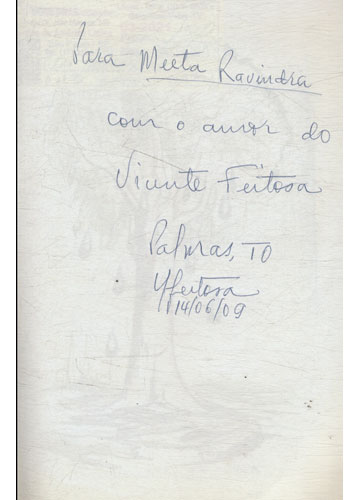 Para Meeta Ravindra
com o amor do
Vicente Feitosa
Palmas, TO
VFeitosa
14/06/09